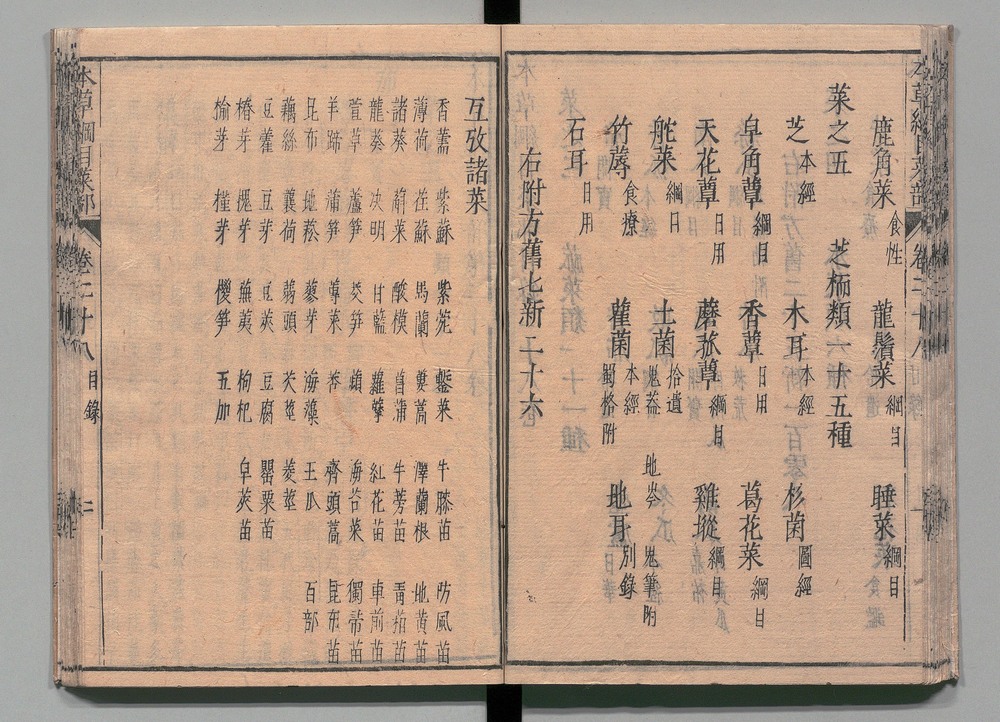 鹿角菜食性　龍鬚菜綱目　睡菜綱目
菜之五　芝栭類一十五種
芝本經　木耳本經　杉菌圖經
皁角蕈綱目　香蕈日用　葛花菜綱目
天花蕈日用　蘑菰蕈綱目　雞㙡綱目
舵菜綱目　土菌拾遺　鬼蓋　地岑　鬼筆附
竹蓐食療　雚菌本經　蜀格附　地耳別錄
石耳日用
右附方舊七新二十六
互攷諸菜
香薷　紫蘇　紫菀　牛膝苗　防風苗
薄荷　荏蘇　馬蘭　蔞蒿　澤蘭根　地黃苗
諸葵　蔛菜　酸模　菖蒲　牛蒡苗　青葙苗
龍葵　决明　甘藍　蘿藦　紅花苗　車前苗
萱草　蘆笋　茭笋　蘋　海苔菜　獨帚苗
羊蹄　蒲笋　蓴菜　莕　齊頭蒿　昆布苗
昆布　地菘　蓼芽　海藻　王瓜　百部
藕絲　蘘荷　蒻頭　芡莖　菱莖
豆藿　豆芽　豆莢　豆腐　罌粟苗
椿芽　槐芽　蕪荑　枸杞　皁莢苗
榆芽　槿芽　㯶笋　五加
本草綱目菜部　卷二十八　目錄　二